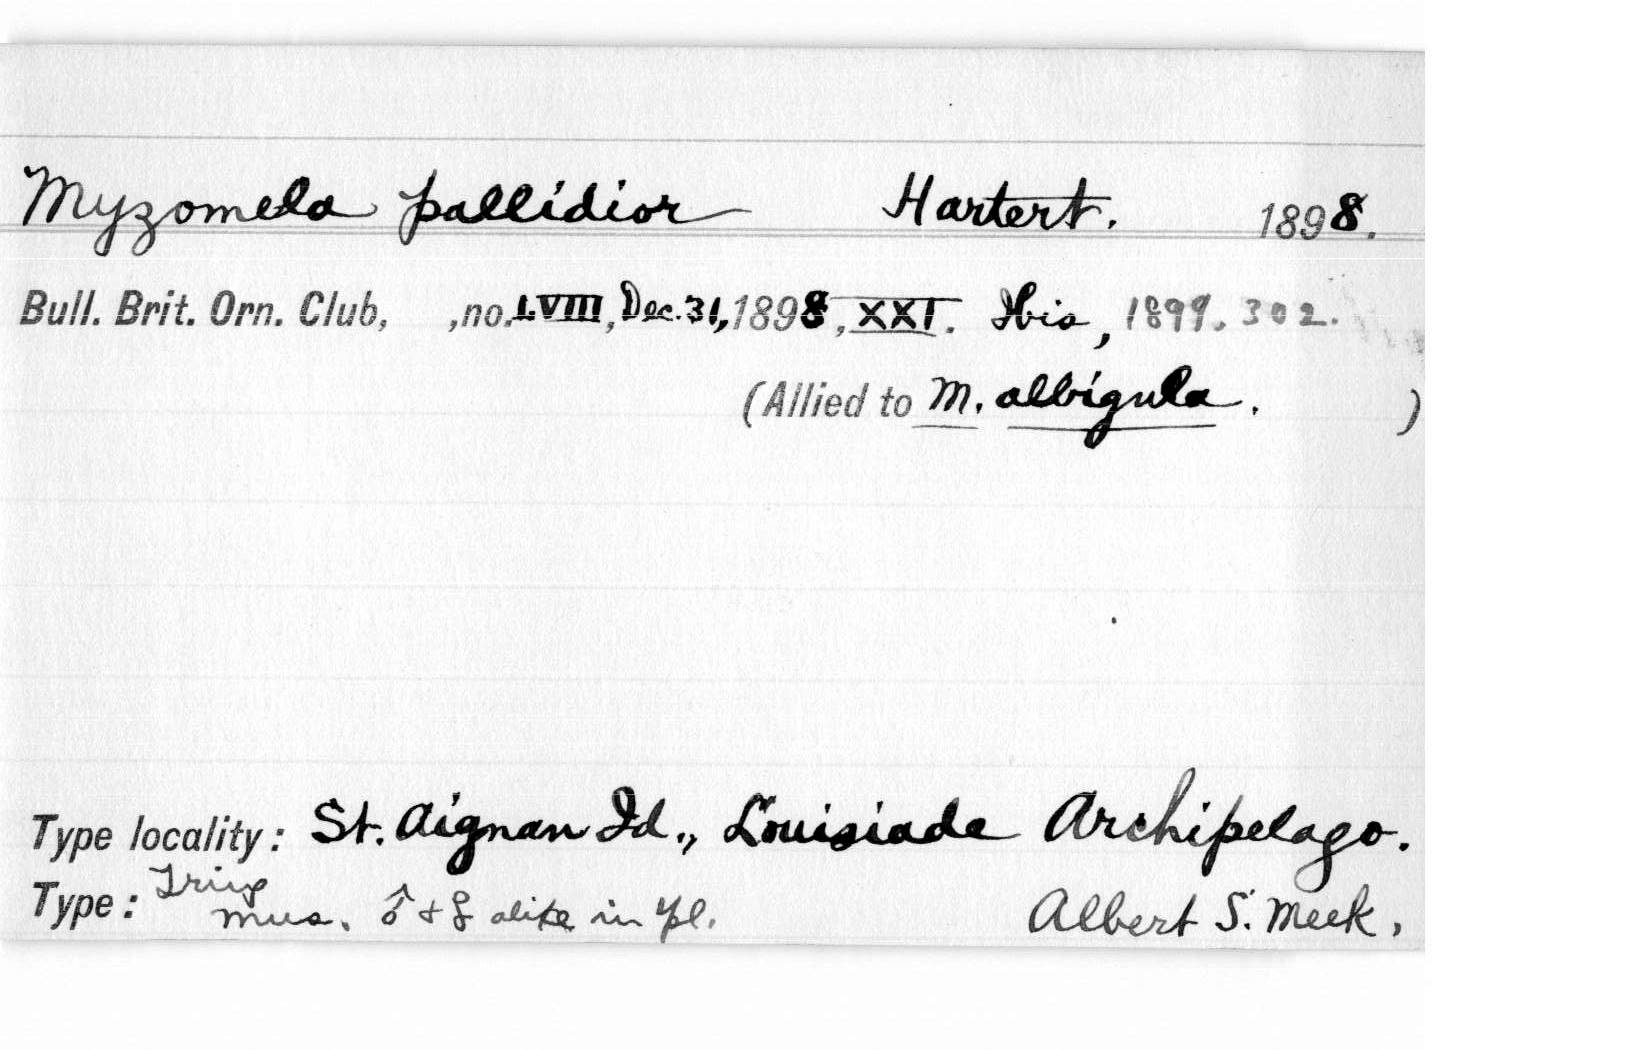 Myzomela pallidior Hartert. 1898.
Bull. Brit. Orn. Club, ,no. LVIII, Dec. 31, 1898, XXI. Ibis, 1899. 302.
(Allied to M. albigula. )
Type locality: St. Aignan Id., Louisiade Archipelago.
Type: Tring
Mus. ♂ + ♀ alike in pl. Albert S. Meek.